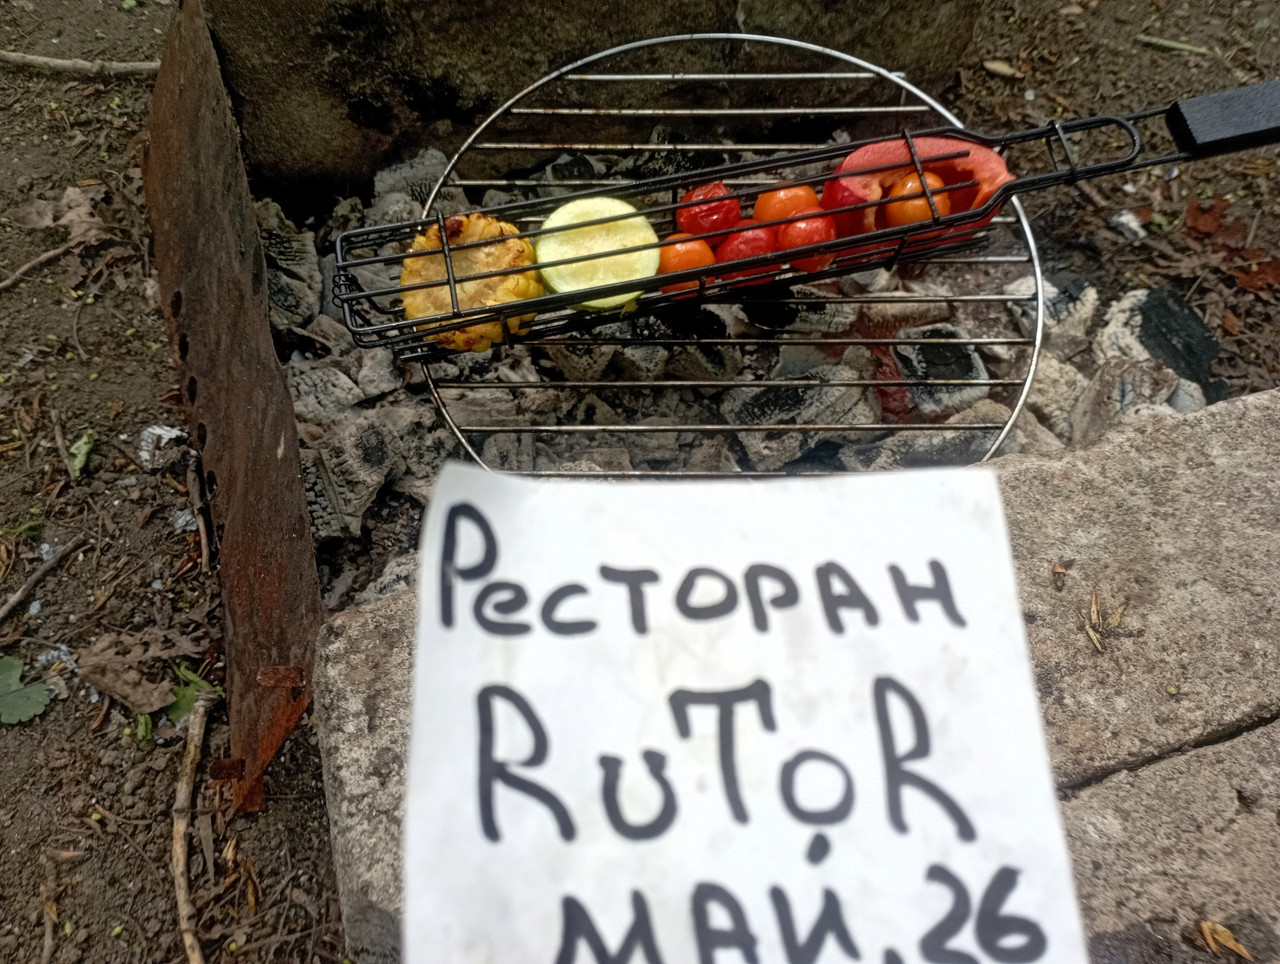 Ресторан
RuToR
май.26